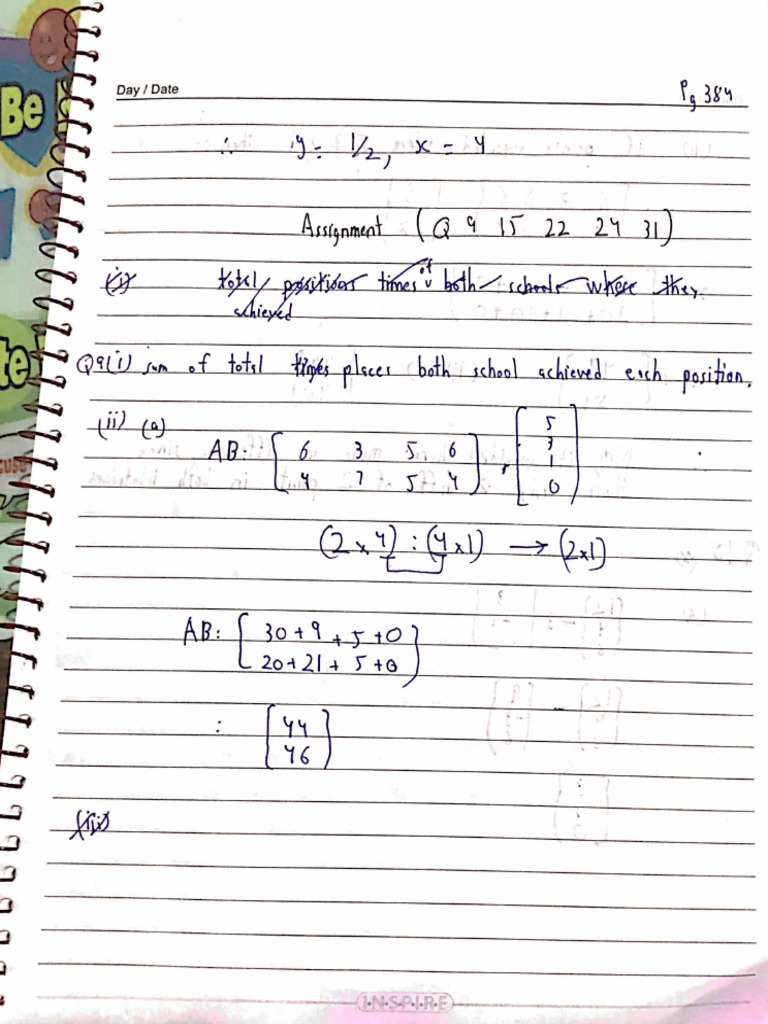 Be
Day / Date
Pg 384
∴ y = 1/2, x = 4
Assignment (Q 9 15 22 24 31)
(i) total positions times of both schools where they
achieved
Q9(i) sum of total times places both school achieved each position.
(ii) (a)
AB: [ 6 3 5 6 ] , [ 5
[ 4 7 5 4 ] 3
1
0 ]
(2 × 4) : (4 × 1) → (2×1)
AB: [ 30 + 9 + 5 + 0 ]
[ 20 + 21 + 5 + 0 ]
: [ 44 ]
[ 46 ]
(iii)
INSPIRE